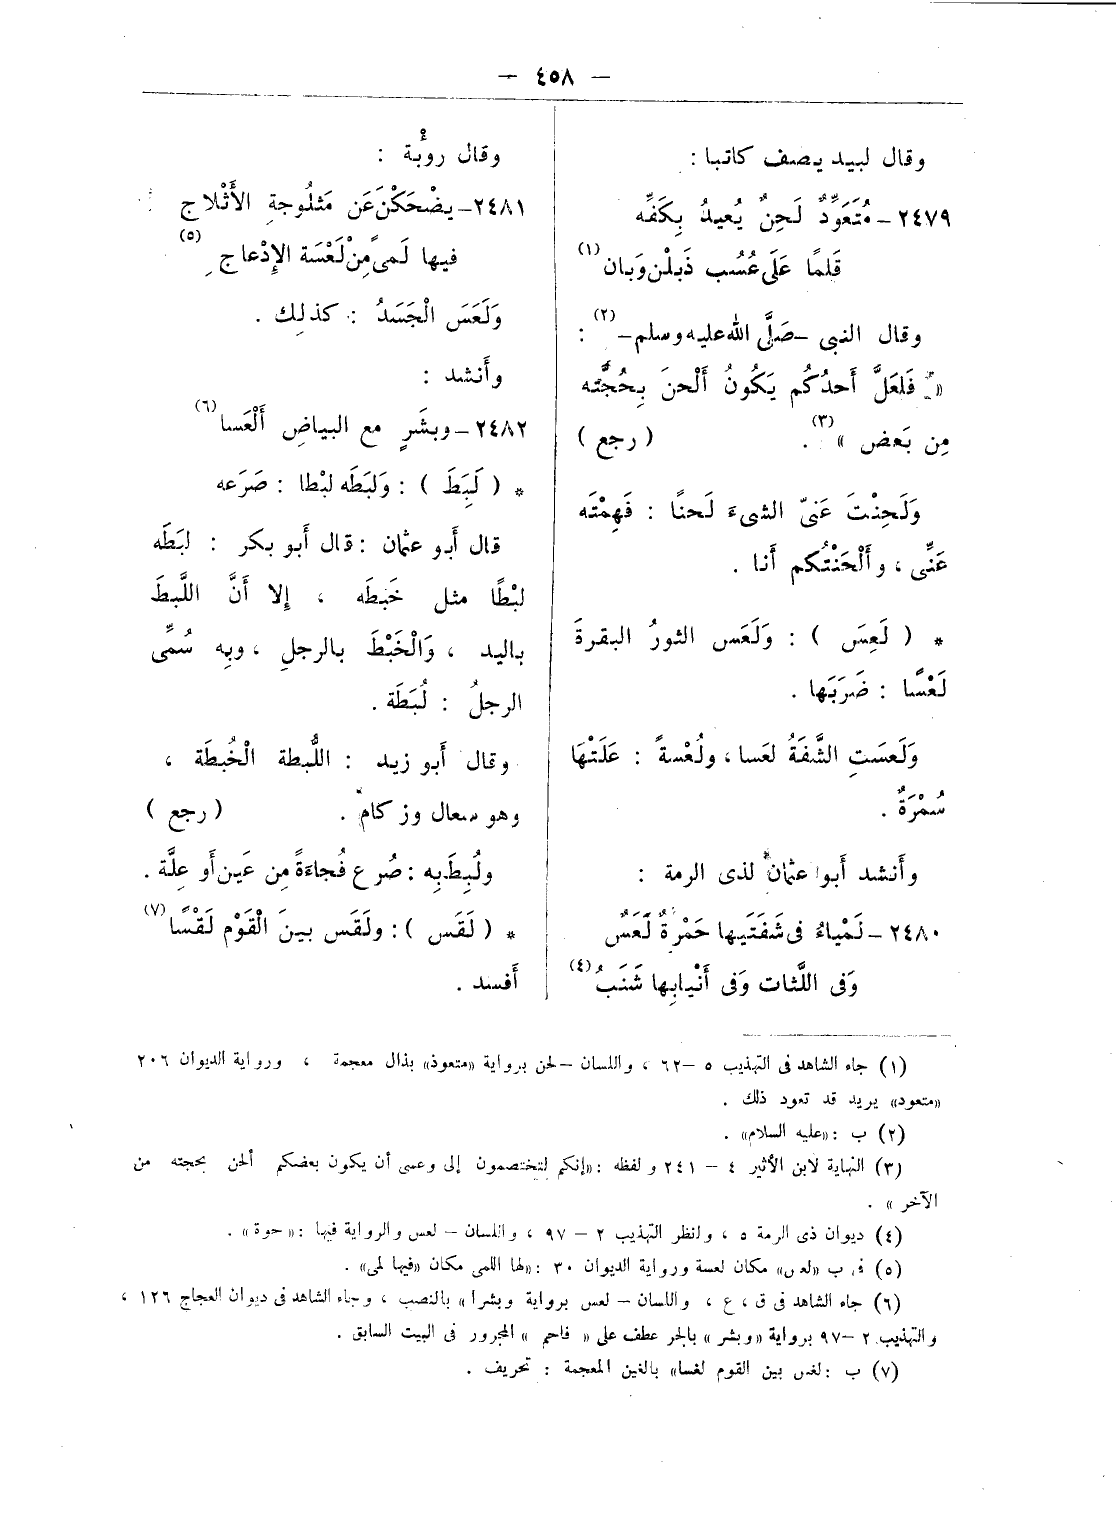 — ٤٥٨ —
وقال لبيد يصف كاتبا :
٢٤٧٩ – مُتَعَوِّدٌ لَحِنٌ يُعيدُ بِكَفِّه
قَلمًا عَلَى عُسُب ذَبلْن وَبان (١)
وقال النبى –صَلَّى الله عليه وسلم– (٢) :
« فَلعَلَّ أحدُكُم يَكُونُ أَلْحنَ بِحُجَّته
مِن بَعض » (٣) . ( رجع )
وَلَحِنْتَ عَنىّ الشىءَ لَحنًا : فَهِمْتَه
عَنِّى ، وأَلْحَنْتُكم أنا .
* ( لَعِسَ ) : وَلَعَس الثورُ البقرةَ
لَعْسًا : ضَرَبَها .
وَلَعسَتِ الشَّفَةُ لعَسا ، ولُعْسةً : عَلَتْهَا
سُمْرَةٌ .
وأنشد أبو عثمان لذى الرمة :
٢٤٨٠ – لَمْياءُ فى شَفَتَيها حَمْرةٌ لَعَسٌ
وَفى اللَّثات وَفى أَنْيابِها شَنَبُ (٤)
وقال رؤبة :
٢٤٨١ – يضْحَكْنَ عَن مَثلُوجةِ الأَثْلاج
فيها لَمىً مِنْ لَعْسَة الإِدْعاج ِ (٥)
وَلَعَسَ الْجَسَدُ : كذلِك .
وأَنشد :
٢٤٨٢ – وبشَرٍ مع البياضِ أَلْعَسا (٦)
* ( لَبِطَ ) : وَلبَطَه لبْطا : صَرَعه
قال أَبو عثمان : قال أَبو بكر : لبَطَه
لبْطًا مثل خَبطَه ، إلا أَنَّ اللَّبطَ
باليد ، وَالْخَبْطَ بالرجلِ ، وبِه سُمِّى
الرجلُ : لُبَطَة .
وقال أَبو زيد : اللُّبطة الْخُبطَة ،
وهو سعال وزكام . ( رجع )
ولُبِطَ بِه : صُرع فُجاءَةً مِن عَين أو عِلَّة .
* ( لَقَس ) : ولَقَس بينَ الْقَوْم لَقْسًا (٧)
أَفسد .
(١) جاء الشاهد فى التهذيب ٥ – ٦٢ ، واللسان – لحن برواية «متعوذ» بذال معجمة ، ورواية الديوان ٢٠٦
«متعود» يريد قد تعود ذلك .
(٢) ب : «عليه السلام» .
(٣) النهاية لابن الأثير ٤ – ٢٤١ ولفظه : «إنكم لتختصمون إلى وعسى أن يكون بعضكم ألحن بحجته من
الآخر » .
(٤) ديوان ذى الرمة ٥ ، وانظر التهذيب ٢ – ٩٧ ، واللسان – لعس والرواية فيها : « حوة » .
(٥) فى ب «لعس» مكان لعسة ورواية الديوان ٣٠ : «لها اللمى مكان «فيها لمى» .
(٦) جاء الشاهد فى ق ، ع ، واللسان – لعس برواية وبشرا » بالنصب ، وجاء الشاهد فى ديوان العجاج ١٢٦ ،
والتهذيب ٢ – ٩٧ برواية «وبشر » بالجر عطف على « فاحم » المجرور فى البيت السابق .
(٧) ب : لغس بين القوم لغسا» بالغين المعجمة : تحريف .